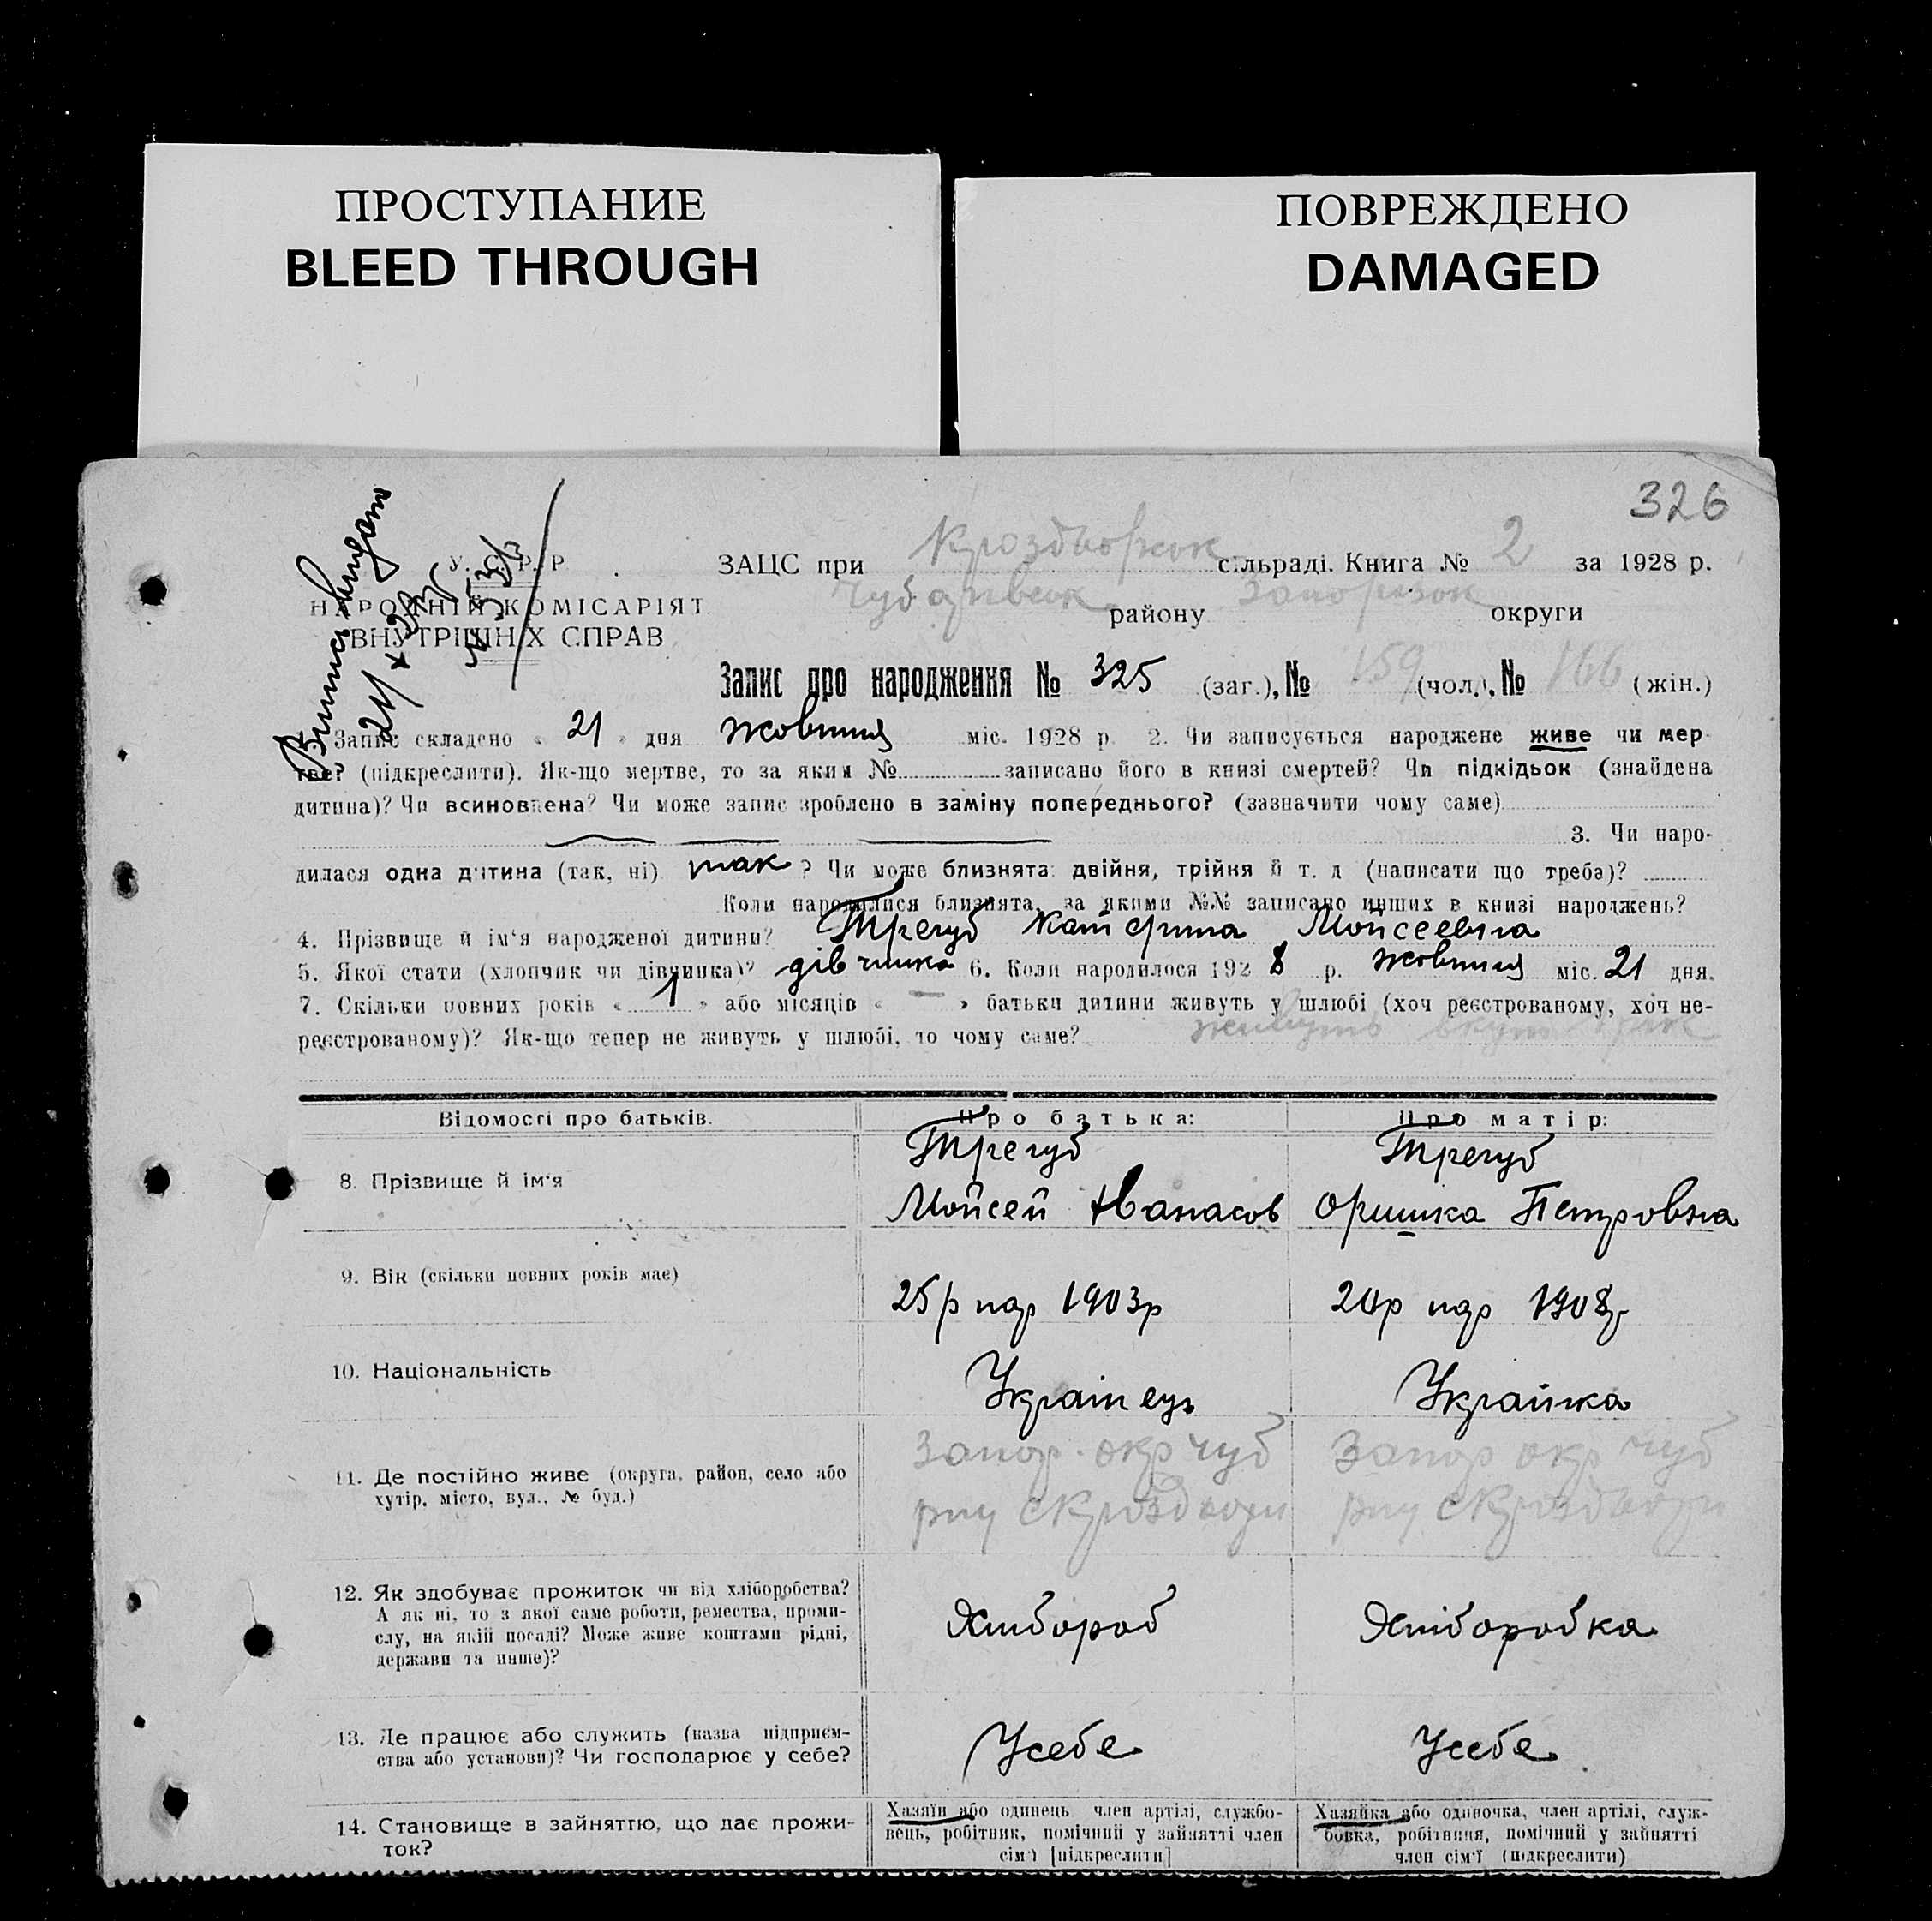 ПРОСТУПАНИЕ
BLEED THROUGH
ПОВРЕЖДЕНО
DAMAGED
326
Випись видана
У. С. Р. Р.
НАРОДНІЙ КОМІСАРІЯТ
ВНУТРІШНІХ СПРАВ
ЗАЦС при сільраді. Книга № 2 за 1928 р.
Чубарівськ району Запорізьк округи
Запис про народження № 325 (заг.), № 159 (чол.), № 166 (жін.)
Запис складено « 21 » дня жовтня міс. 1928 р. 2. Чи записується народжене живе чи мер-
тве? (підкреслити). Як-що мертве, то за яким № записано його в книзі смертей? Чи підкідьок (знайдена
дитина)? Чи всиновлена? Чи може запис зроблено в заміну попереднього? (зазначити чому саме)
3. Чи наро-
дилася одна дитина (так, ні) так ? Чи може близнята: двійня, трійня й т. д. (написати що треба)?
Коли народилися близнята, за якими №№ записано инших в книзі народжень?
4. Прізвище й ім‘я народженої дитини? Трегуб Катерина Мойсеевна
5. Якої стати (хлопчик чи дівчинка)? дівчинка 6. Коли народилося 1928 р. жовтня міс. 21 дня.
7. Скільки повних років « 1 » або місяців « — » батьки дитини живуть у шлюбі (хоч реєстрованому, хоч не-
реєстрованому)? Як-що тепер не живуть у шлюбі, то чому саме? живуть вкупі
Відомості про батьків. Про батька: Про матір:
8. Прізвище й ім‘я Трегуб Мойсей Аванасов Трегуб Оришка Петровна
9. Вік (скільки повних років має) 25р нар 1903р 20р нар 1908р
10. Національність Українець Українка
11. Де постійно живе (округа, район, село або Запор. окр Чуб Запор окр Чуб
хутір, місто, вул., № буд.)
12. Як здобуває прожиток чи від хліборобства? Хлібороб Хліборобка
А як ні, то з якої саме роботи, ремества, проми-
слу, на якій посаді? Може живе коштами рідні,
держави та инше)?
13. Де працює або служить (назва підприєм- Усебе Усебе
ства або установи)? Чи господарює у себе?
14. Становище в зайняттю, що дає прожи-
ток?
Хазяїн або одинець, член артілі, службо-
вець, робітник, помічний у зайнятті член
сім‘ї [підкреслити]
Хазяйка або одиночка, член артілі, служ-
бовка, робітниця, помічний у зайнятті
член сім‘ї (підкреслити)